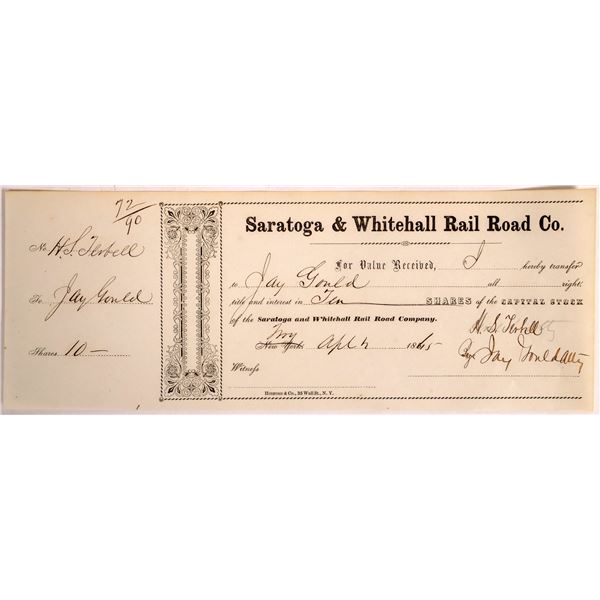 72/90
No. H. S. Terbell
To Jay Gould
Shares 10 —
Saratoga & Whitehall Rail Road Co.
For Value Received, I hereby transfer
to Jay Gould all right,
title and interest in Ten SHARES of the CAPITAL STOCK
of the Saratoga and Whitehall Rail Road Company.
Troy
New York, Apl 4 1865
H. S. Terbell
By Jay Gould atty
Witness
HOSFORD & CO., 35 Wall St., N. Y.